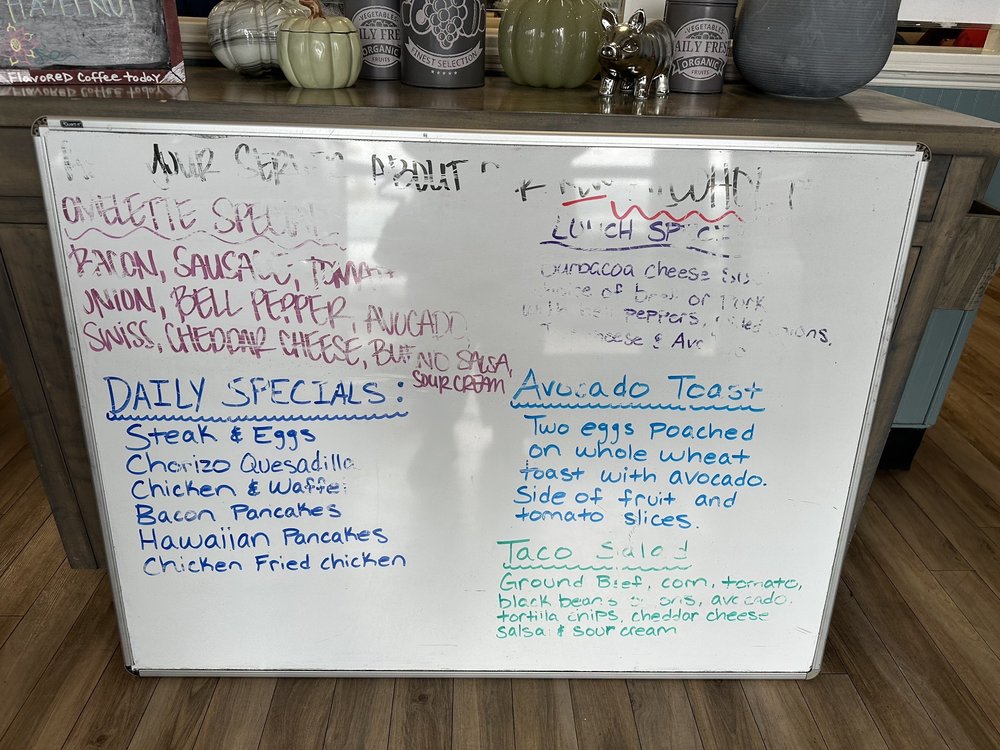 HAZELNUT
FLAVORED Coffee today
VEGETABLES
DAILY FRESH
ORGANIC
FRUITS
FINEST SELECTION
VEGETABLES
DAILY FRESH
ORGANIC
FRUITS
YOUR ABOUT
OMELETTE SPECIAL
BACON, SAUSAGE, TOMATO
ONION, BELL PEPPER, AVOCADO,
SWISS, CHEDDAR CHEESE, BUT NO SALSA,
SOUR CREAM
DAILY SPECIALS:
Steak & Eggs
Chorizo Quesadilla
Chicken & Waffle
Bacon Pancakes
Hawaiian Pancakes
Chicken Fried chicken
LUNCH SPECI
Barbacoa cheese
choice of beef or Pork
with bell peppers, onions,
cheese & Avo
Avocado Toast
Two eggs poached
on whole wheat
toast with avocado.
Side of fruit and
tomato slices.
Taco Salad
Ground Beef, corn, tomato,
black beans, avocado.
tortilla chips, cheddar cheese
salsa & sour cream